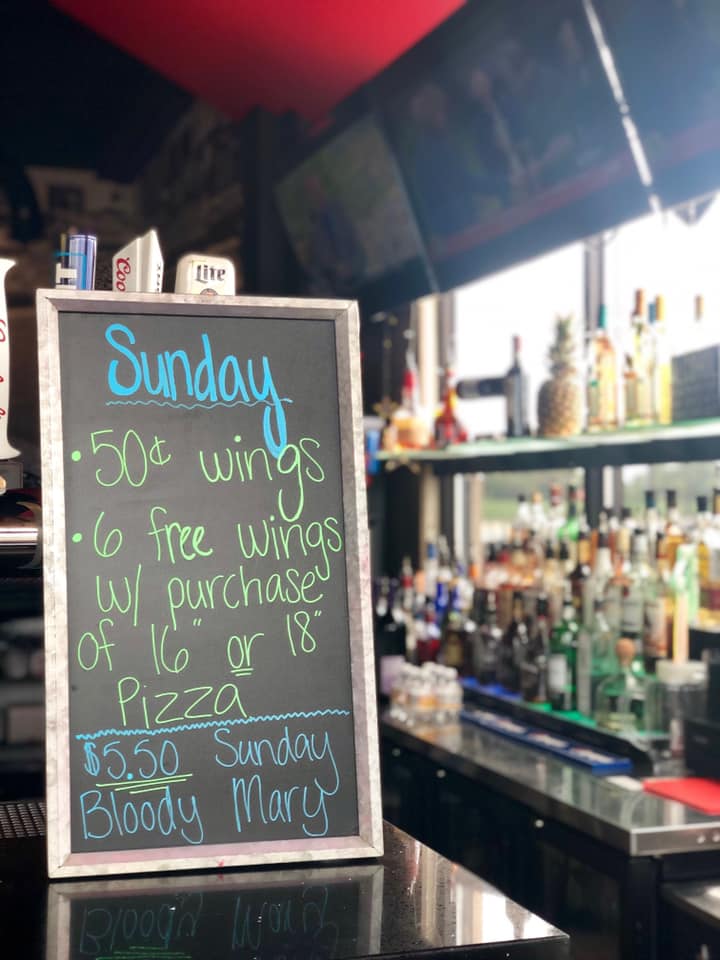 Coo
Lite
Sunday
• 50¢ wings
• 6 free wings
w/ purchase
of 16" or 18"
Pizza
$5.50 Sunday
Bloody Mary